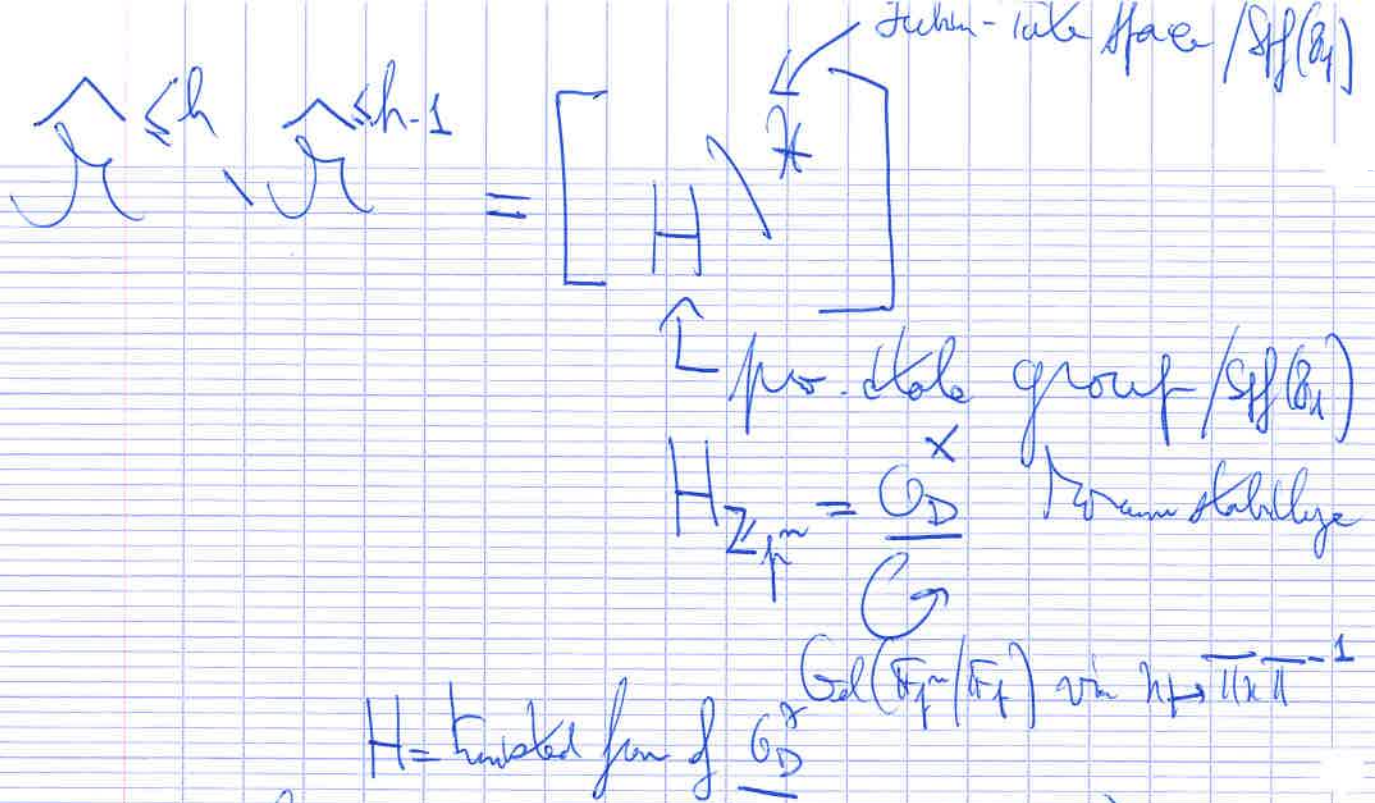 Lubin-Tate space / Spf(ℤ_p)
\hat{ℳ}^{≤h} \ \hat{ℳ}^{≤h-1} = [ H \ 𝒳 ]
pro-étale group / Spf(ℤ_p)
H_{ℤ_{p^n}} = \underline{𝒪_D^×} Morava stabilizer
Gal(𝔽_{p^n}/𝔽_p) via x ↦ Π x Π^{-1}
H = twisted form of \underline{𝒪_D^×}